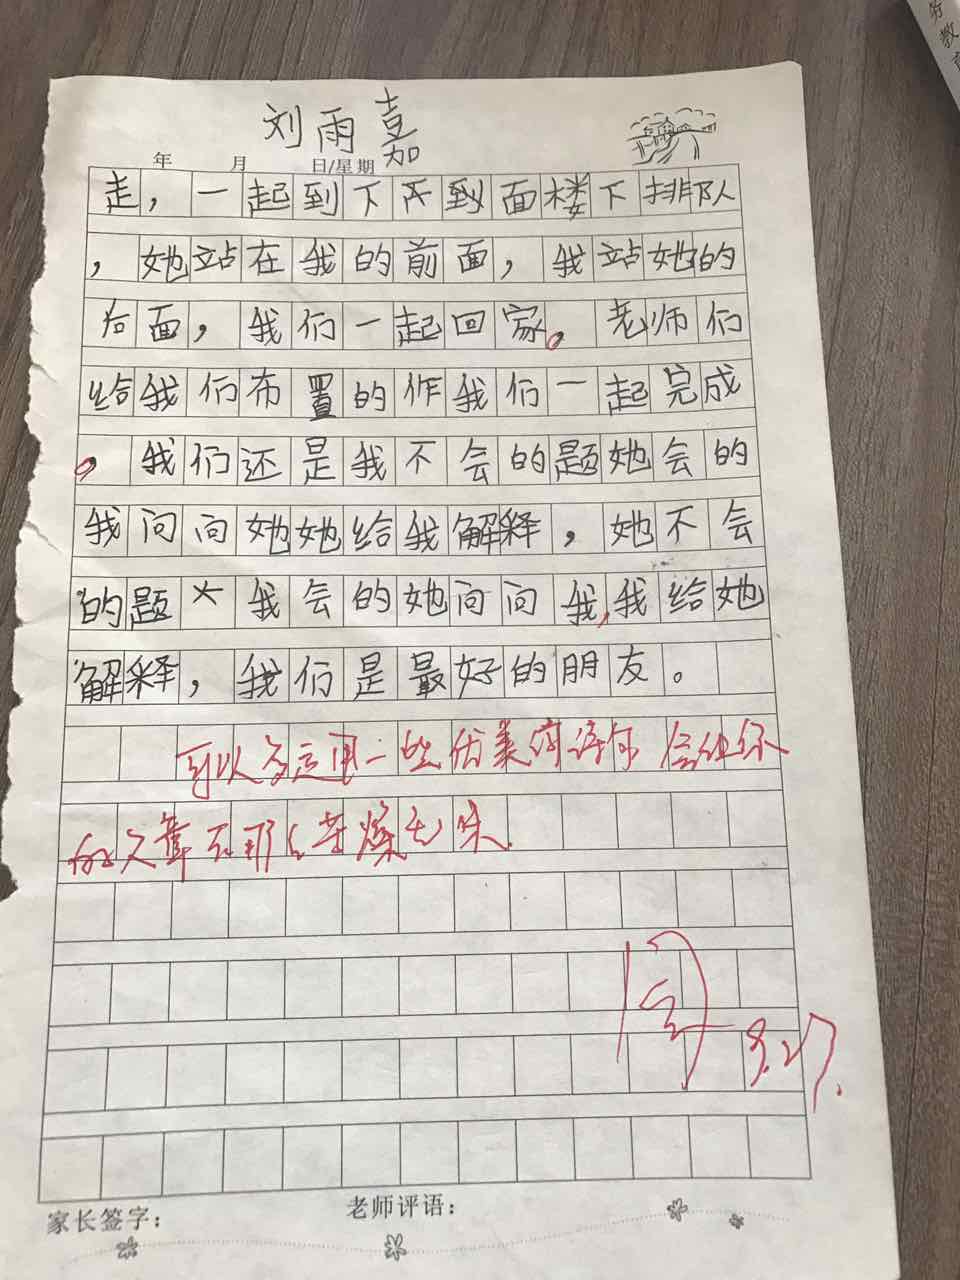 刘雨嘉
年 月 日/星期
走，一起到下不到面楼下排队
，她站在我的前面，我站她的
后面，我们一起回家。老师们
给我们布置的作我们一起完成
。我们还是我不会的题她会的
我问问她她给我解释，她不会
的题 我会的她问问我，我给她
解释，我们是最好的朋友。
可以多运用一些优美的语句 会让你
的文章不那么枯燥无味.
9.27.
家长签字：
老师评语：
务教